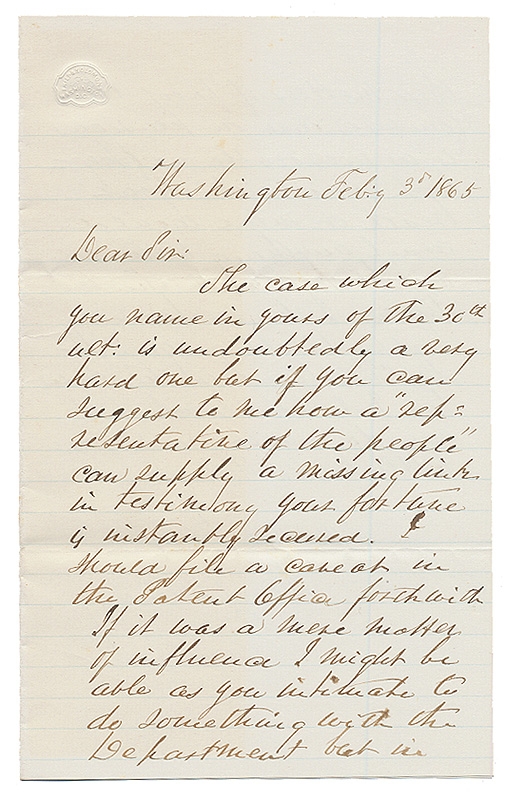 Washington Feb:y 3d 1865
Dear Sir:
The case which
you name in yours of the 30th
ult: is undoubtedly a very
hard one but if you can
suggest to me how a "rep=
resentative of the people"
can supply a missing link
in testimony your fortune
is instantly secured. I
should file a caveat in
the Patent Office forthwith
If it was a mere matter
of influence I might be
able as you intimate to
do something with the
Department but in